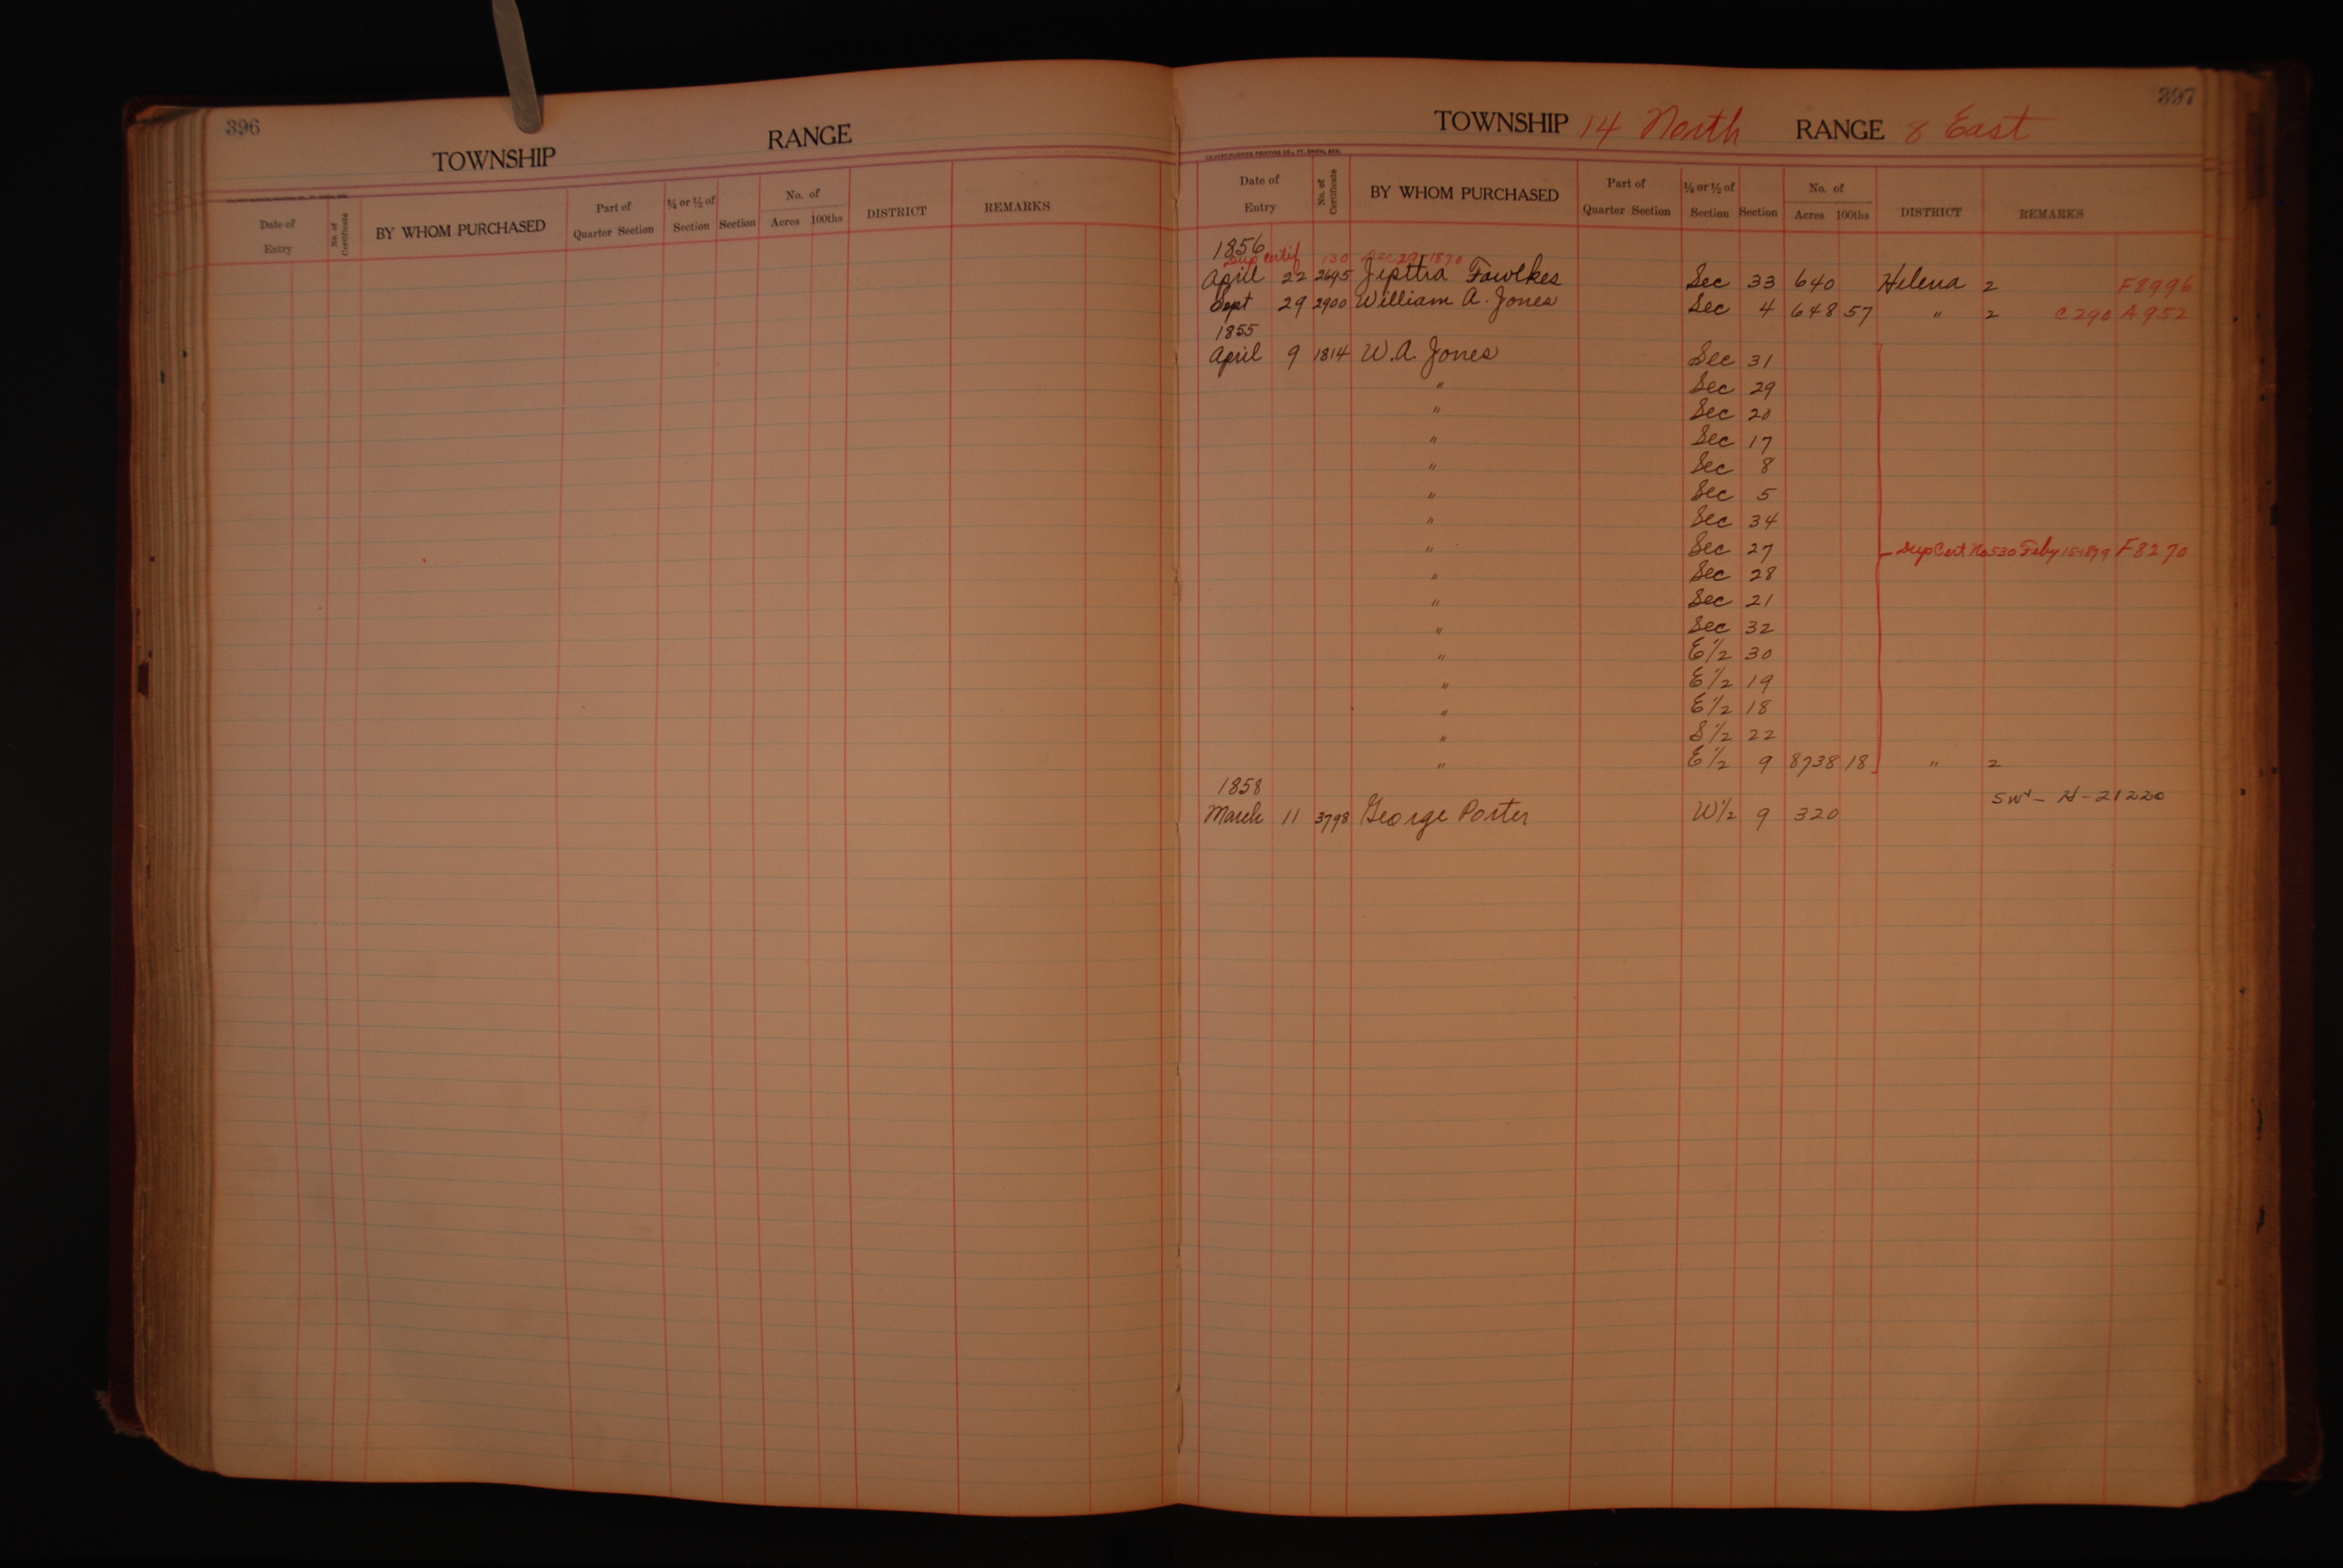 396
TOWNSHIP RANGE
Date of Entry No. of Certificate BY WHOM PURCHASED Part of Quarter Section ¼ or ½ of Section Section No. of Acres 100ths DISTRICT REMARKS
397
TOWNSHIP 14 North RANGE 8 East
CALVERT-McBRIDE PRINTING CO., FT. SMITH, ARK.
Date of Entry No. of Certificate BY WHOM PURCHASED Part of Quarter Section ¼ or ½ of Section Section No. of Acres 100ths DISTRICT REMARKS
1856
Dup Certif 130 Dec 29 1870
April 22 2695 Jepttra Fawlkes Sec 33 640 Helena 2 F8996
Sept 29 2900 William A. Jones Sec 4 648 57 " 2 C290 A952
1855
April 9 1814 W.A. Jones Sec 31
" Sec 29
" Sec 20
" Sec 17
" Sec 8
" Sec 5
" Sec 34
" Sec 27 Dup Cert No 530 Feby 15-1879 F8270
" Sec 28
" Sec 21
" Sec 32
" E½ 30
" E½ 19
" E½ 18
" S½ 22
" E½ 9 8738 18 " 2
1858
March 11 3798 George Porter W½ 9 320 SW⁴ - H - 21220